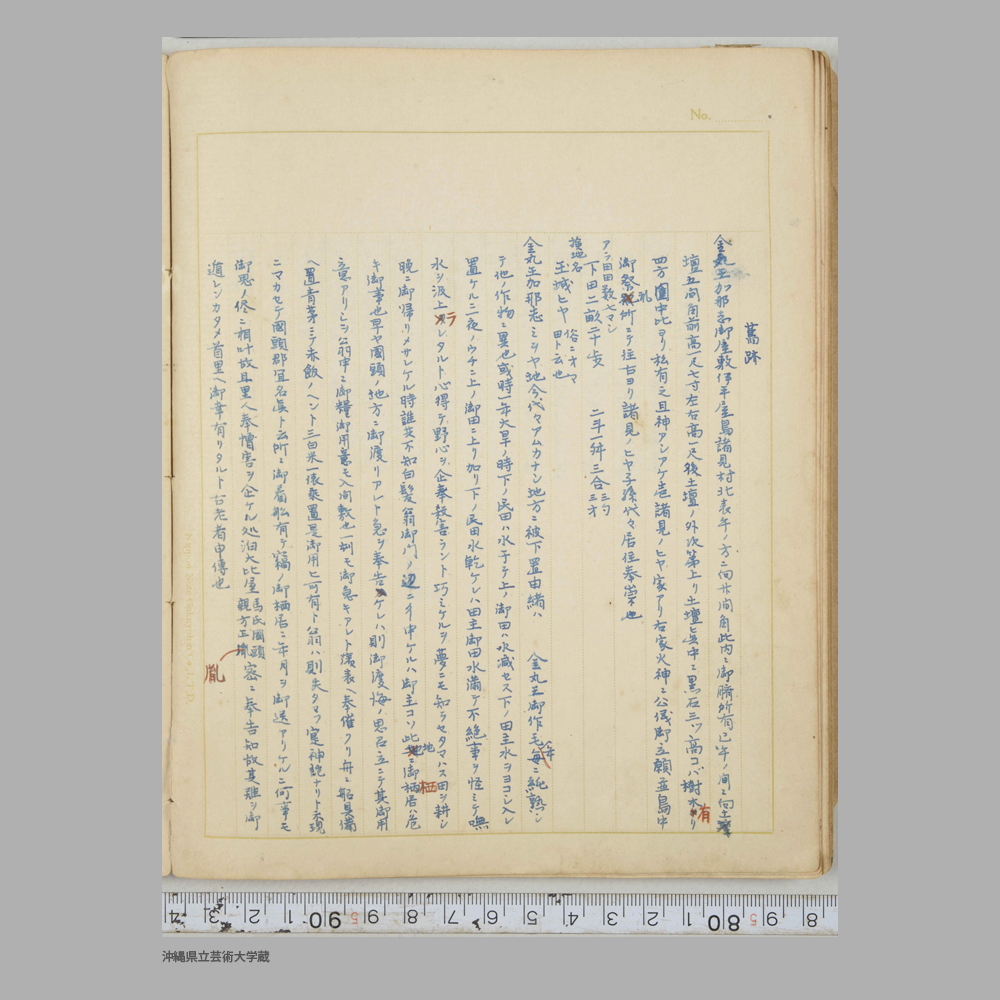 No.
舊跡
金丸王加那志御屋敷伊平屋島諸見村北表午ノ方ニ向廿間角此内ニ御臍所有巳午ノ間ニ向土
壇五间角前高一尺七寸左右高一尺後土壇ノ外次第上リ土壇ヒ其中ニ黒石三ツ高コバ樹木有リ
四方圍中比ヨリ私有之且神アシアケ壱諸見ノヒヤ家アリ右家火神ニ公儀御立願並島中
御祭礼所ニテ往古ヨリ諸見ノヒヤ子孫代々居住奉崇也
アラ田田数七マシ
下田二畝二十歩 二斗一舛三合三勺三才
旗地名 俗ニナマ
玉城ヒヤ田ト云也
金丸王加那志ミシヤ地今代々アムカナシ地方ニ被下置由緒ハ 金丸王御作毛毎年ニ純熟シ
テ他ノ作物ニ異也或時一年大旱ノ時下ノ民田ハ水干テ上ノ御田ハ水減セス下ノ田主水ヲヨコシ入レ
置ケル二夜ノウチニ上ノ御田ニ上リ加リ下ノ民田水乾ケレハ田主御田水満テ不絶事ヲ怪ミケ嘿
水ヲ汲上ラレタルト心得テ野心ヲ企奉殺害ラント巧ミケルヲ夢ニモ知ラセタマハス田ヲ耕シ
晩ニ御帰リメサレケル時誰共不知白髪翁御門ノ辺ニ来申ケルハ御主コソ此地ニ御栖居ハ危
キ御事也早ヤ國頭ノ地方ニ御渡リアレト急ヲ奉告ケレハ則御渡海ノ思召立ニテ其御用
意アリシヲ公羽申ニ御糧御用意モ入间敷也一刻モ御急キアレト濱表ヘ奉催クリ舟ニ船具備
ヘ置青芽ニテ赤飯ノヘント三白米一俵乗置是御用ヒ可有ト翁ハ則失タマフ寔神託ナリト示現
ニマカセテ國頭郡宜名真ト云所ニ御着船有テ竊ノ御栖居ニ年月ヲ御送アリケルニ何事モ
御思ノ侭ニ相叶故且里人奉憎害ヲ企ケル処泊大比屋 馬氏國頭親方正胤 密ニ奉告知故其難ヲ御
胤
遁レンカタメ首里ヘ御幸有リタルト古老者申傳也
沖縄県立芸術大学蔵